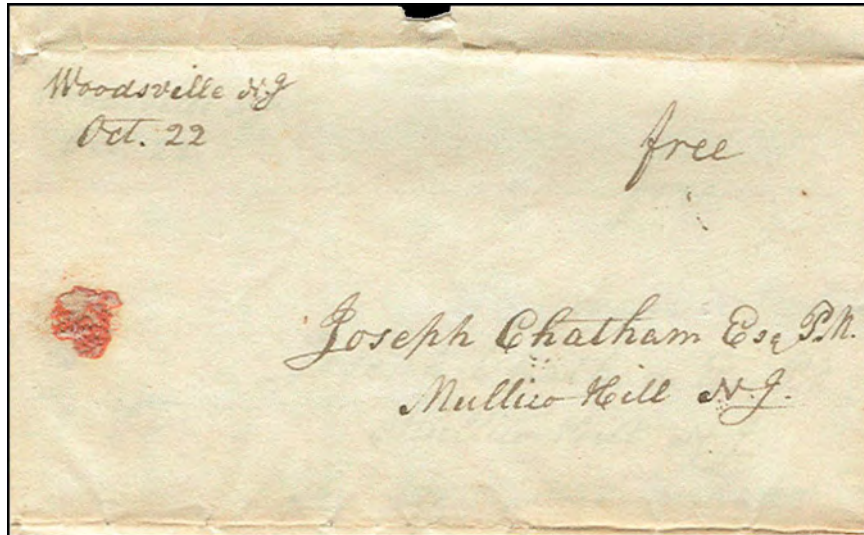 Woodsville N.J
Oct. 22
free
Joseph Chatham Esq P.M.
Mullico Hill N.J.